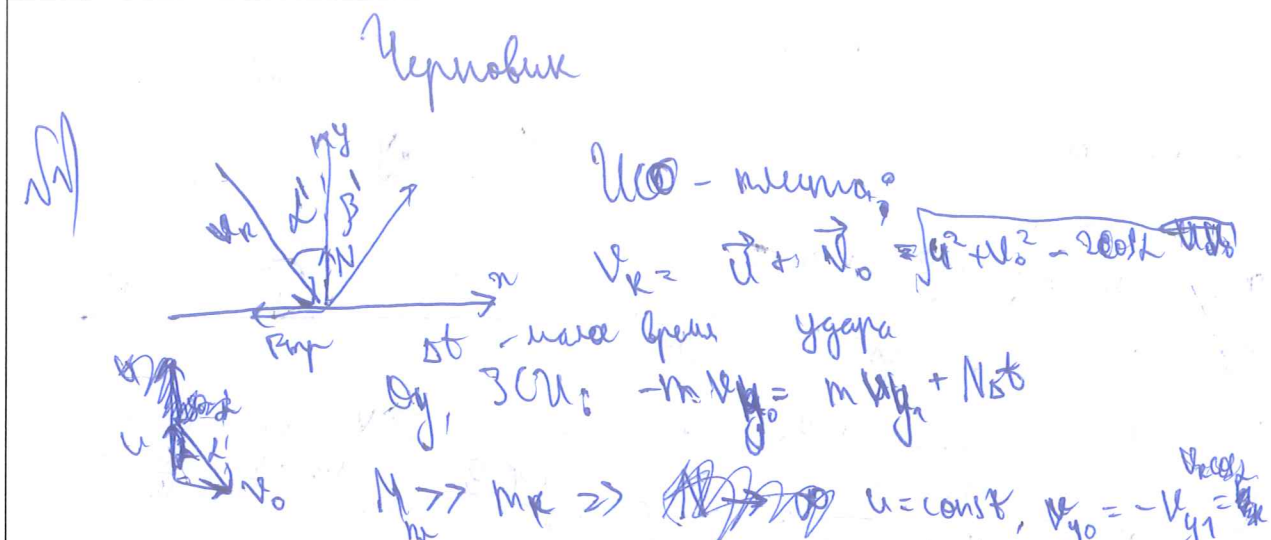 Черновик
№1
y
α' β'
v_к N
x
Fтр
ИСО - плита:
v_к = u⃗ + v⃗_0 = √(u² + v_0² - 2cosα u v_0)
Δt - малое время удара
Oy, ЗСИ: -m v_y0 = m v_y1 + NΔt
u α'
v_0
M_пл >> m_к => u = const, v_y0 = -v_y1 = v_к cosα